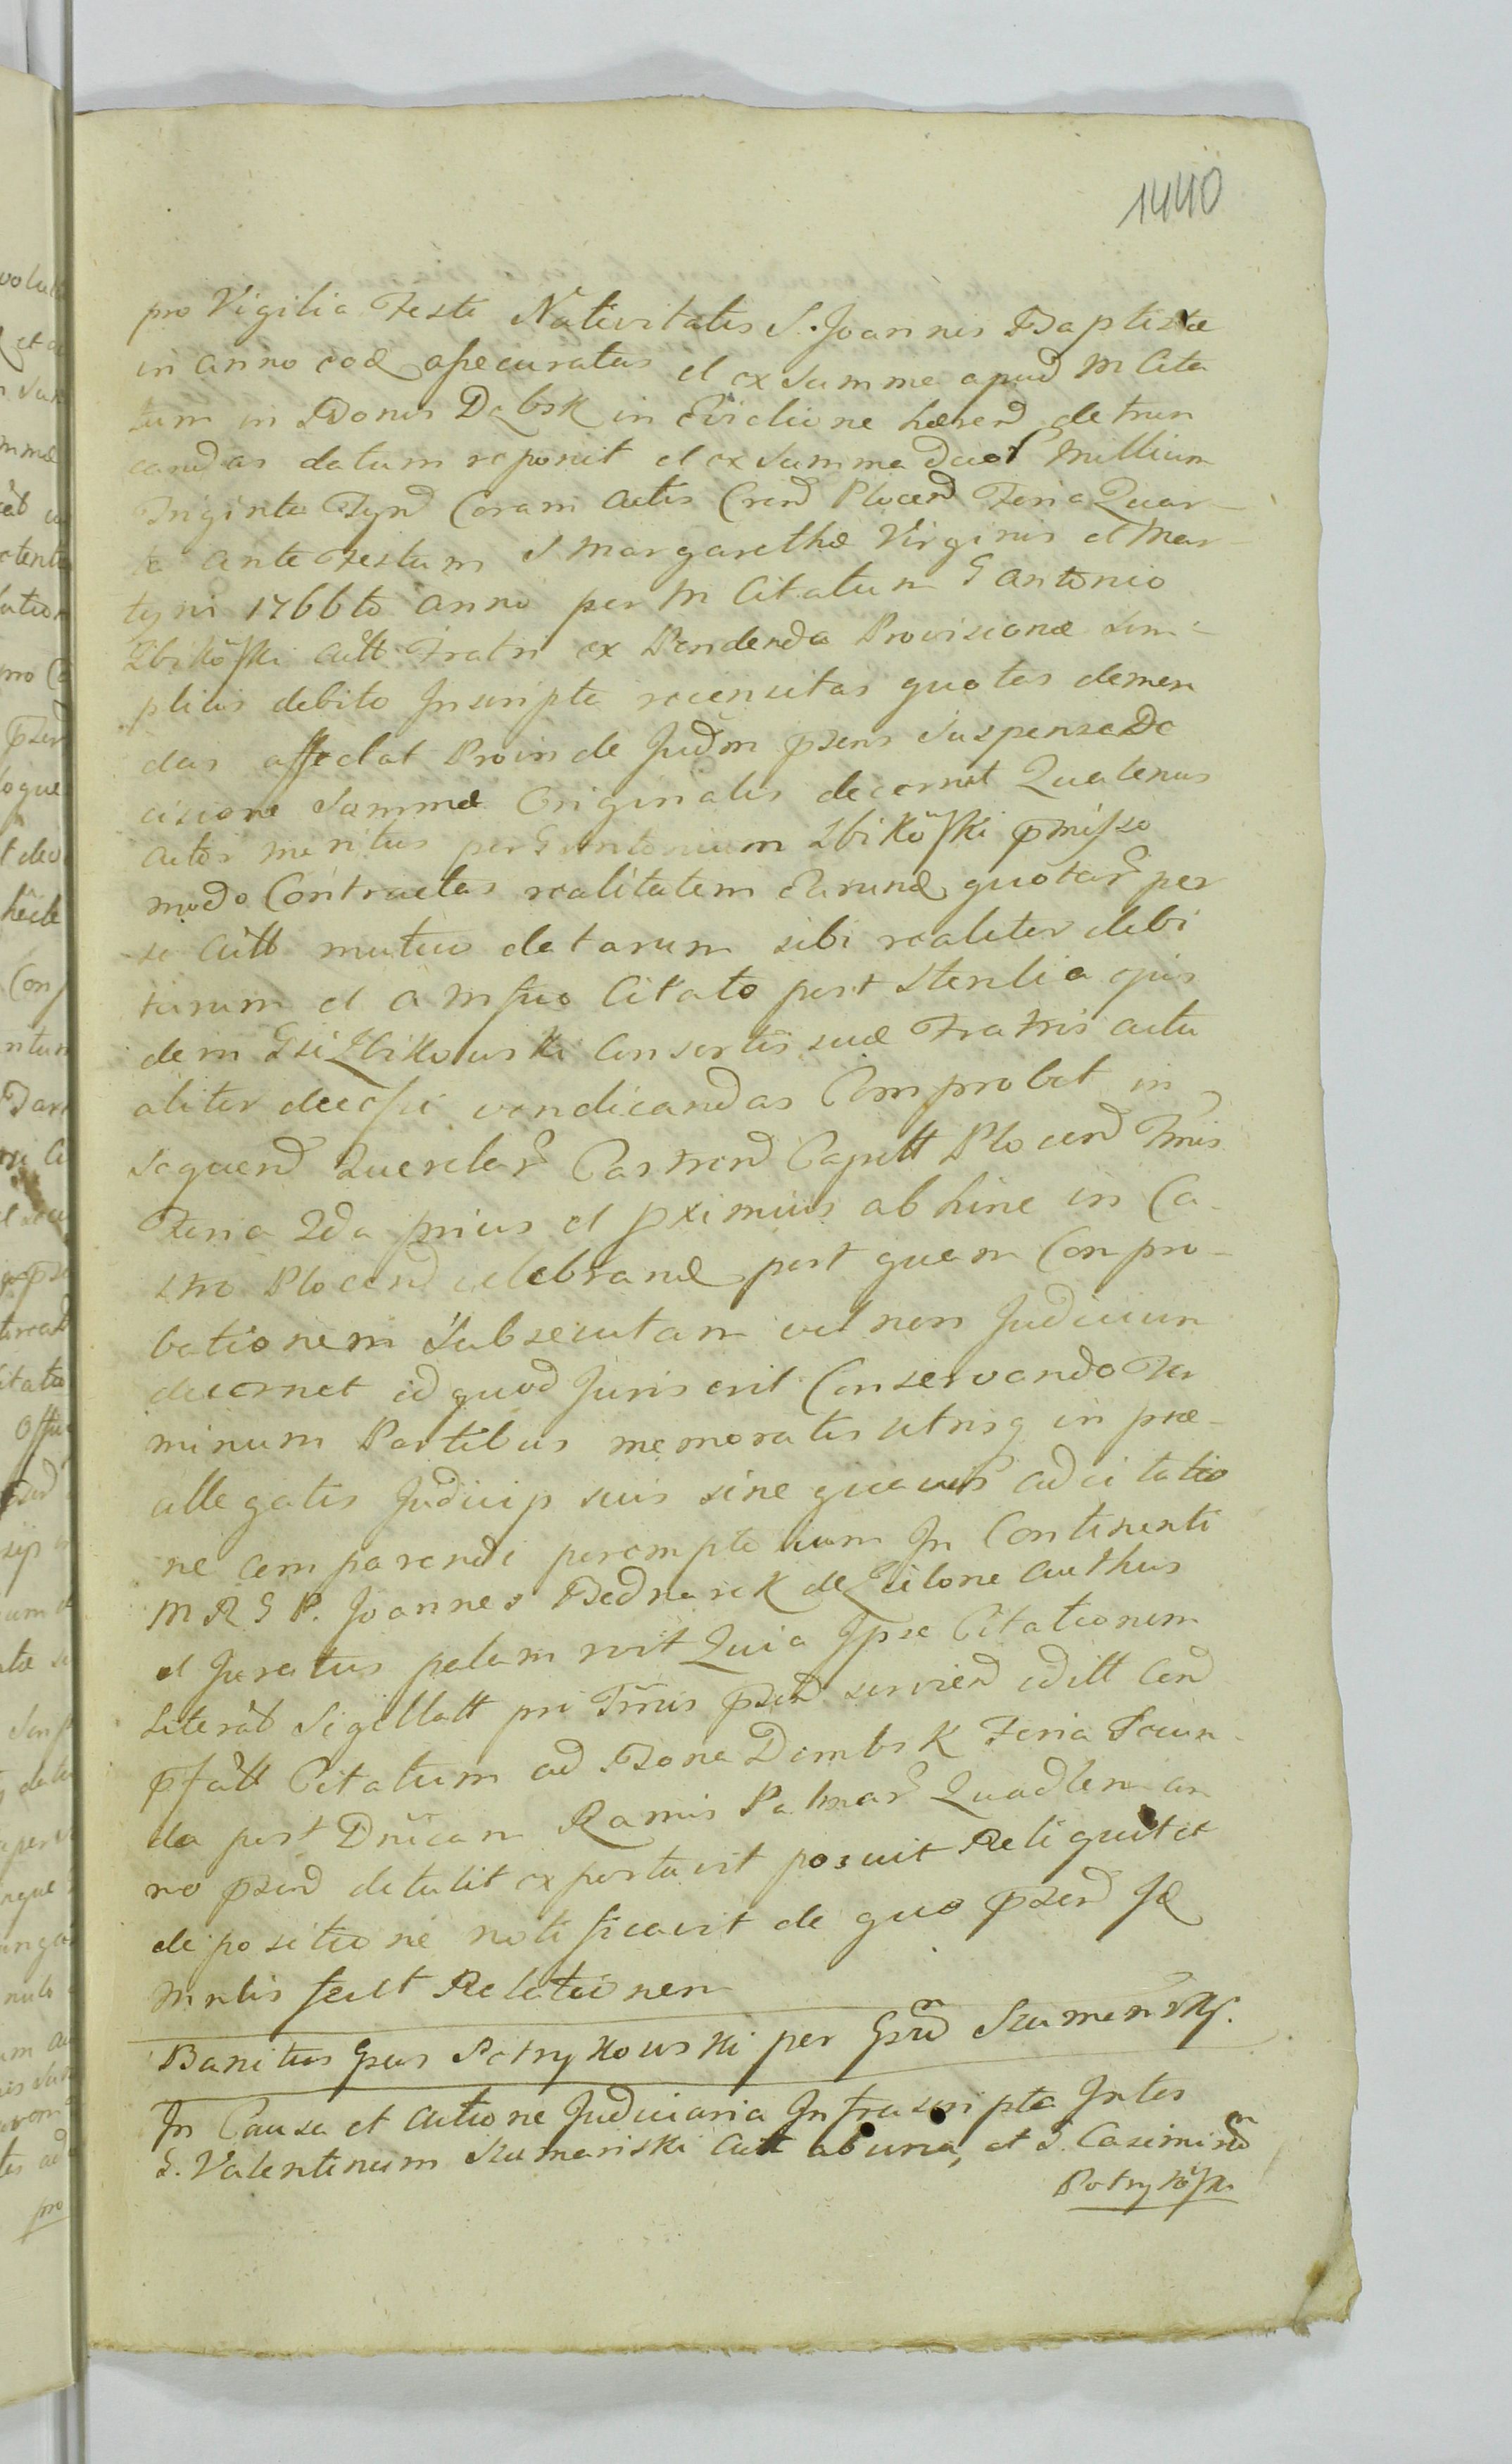 1440
pro Vigilia Festi Nativitatis S. Joannis Baptistæ
in anno eod assecuratas et ex Summa apud M Cita
tum in Bonis Dąbsk in Evictione hærend detrun
candas datum reponit et ex Summa duor Millium
Triginta Tynd Coram Actis Crend Plocend Feria Quar-
ta ante Festum S Margarethæ Virginis et Mar-
tyris 1766to Anno per M Citatum G Antonio
Zbikoski Actt Fratri ex Pendenda Provisione sim-
plicis debito Inscripta recensitas quotas demen
das affectat Proinde Judm psens suspensa De
cisione Summæ Originalis decernit Quatenus
Actor meritus per G Antonium Zbikoski pmisso
modo Contractas realitatem Earund quotar per
se Actt mutuo datarum sibi realiter debi
tarum et a Msuo Citato post Sterilia ejus
dem Gsi Zbikowski Consortis suæ Fratris actu
aliter decessi vendicandas Comprobet in
sequend Querelar Castrend Capitt Plocend Tmis
Feria 2da prius et pximius abhinc in Ca-
stro Plocend celebrand post quam Conpro-
bationem Subsecutam vel non Judicium
decernet id quod Juris erit Conservando Ter
minum Partibus memoratis utrisq in præ-
allegatis Judicijs suis sine quavis adcitatio
ne comparendi peremptorium In Continenti
M R G P. Joannes Bednarek de Zilone Authus
et Juratus palam rvit Quia Ipse Citationem
Literat Sigillatt pri Tmis psend serviend Editt Cend
pfatt Citatum ad Bona Dembsk Feria Secun-
da post Dnicam Ramis Palmar Quadlem an
no psend detulit exportavit posuit Reliquit et
de positione notificavit de quo psend Jd
Mrlis fecit Relationem
Banitus Gsus Potrykowski per Gsud Szumansky.
In Causa et Actione Judiciaria Infrascripta Inter
G. Valentinum Szumanski Actt ab una, et G. Casimirum
Potrykoski